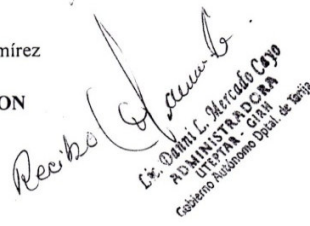 mírez
ON
Recibo
Lic. Danni L. Mercado Cayo
ADMINISTRADORA
UTEPTAR - GIRH
Gobierno Autónomo Dptal. de Tarija